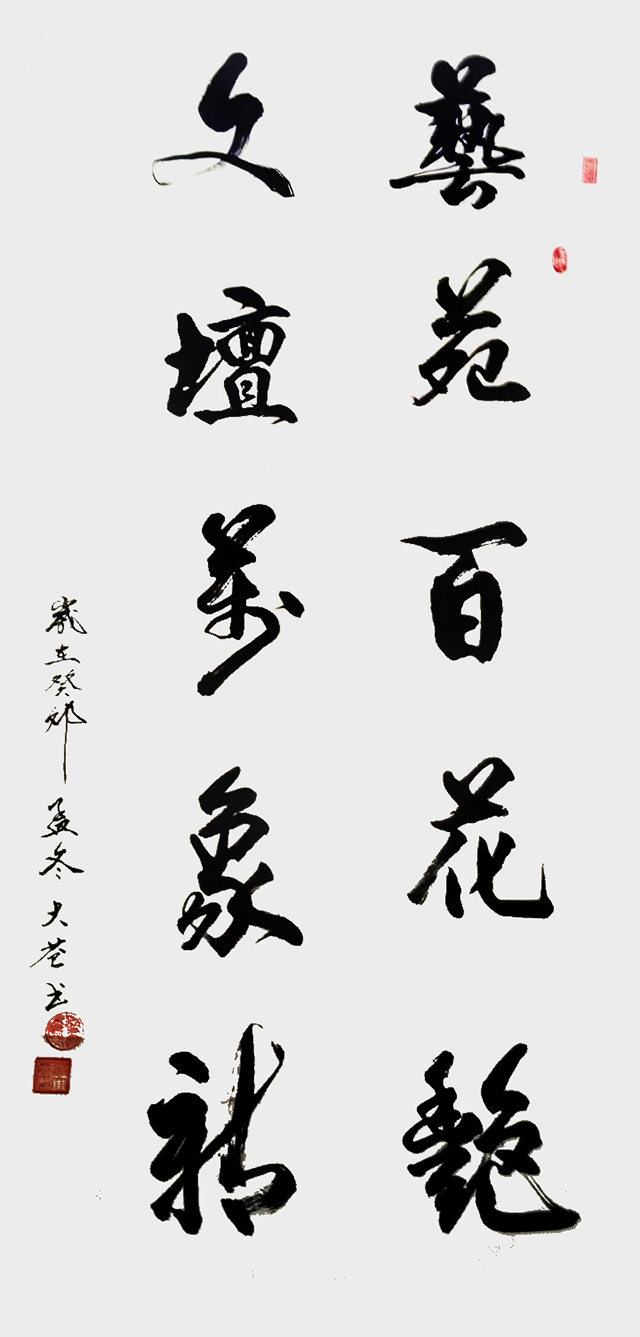 藝苑百花艷
文壇萬象新
歲在癸卯孟冬大苍书